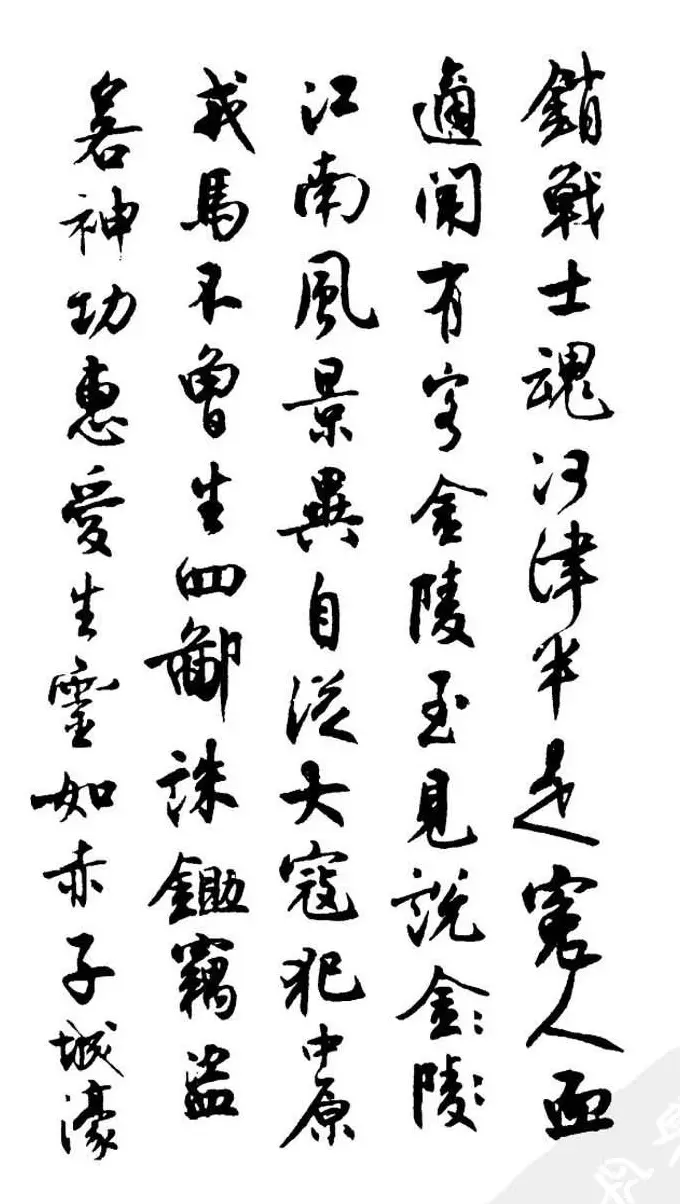 鎖戰士魂河津半是寃人血
適聞有客金陵至見說金陵
江南風景異自從大寇犯中原
戎馬不曾生四鄙誅鋤竊盜
若神功惠愛生靈如赤子城濠